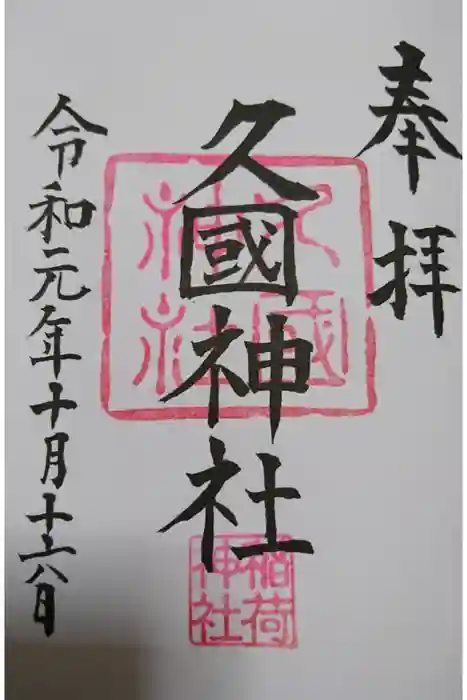 奉拝
久國神社
久國神社
稲荷神社
令和元年十月十六日